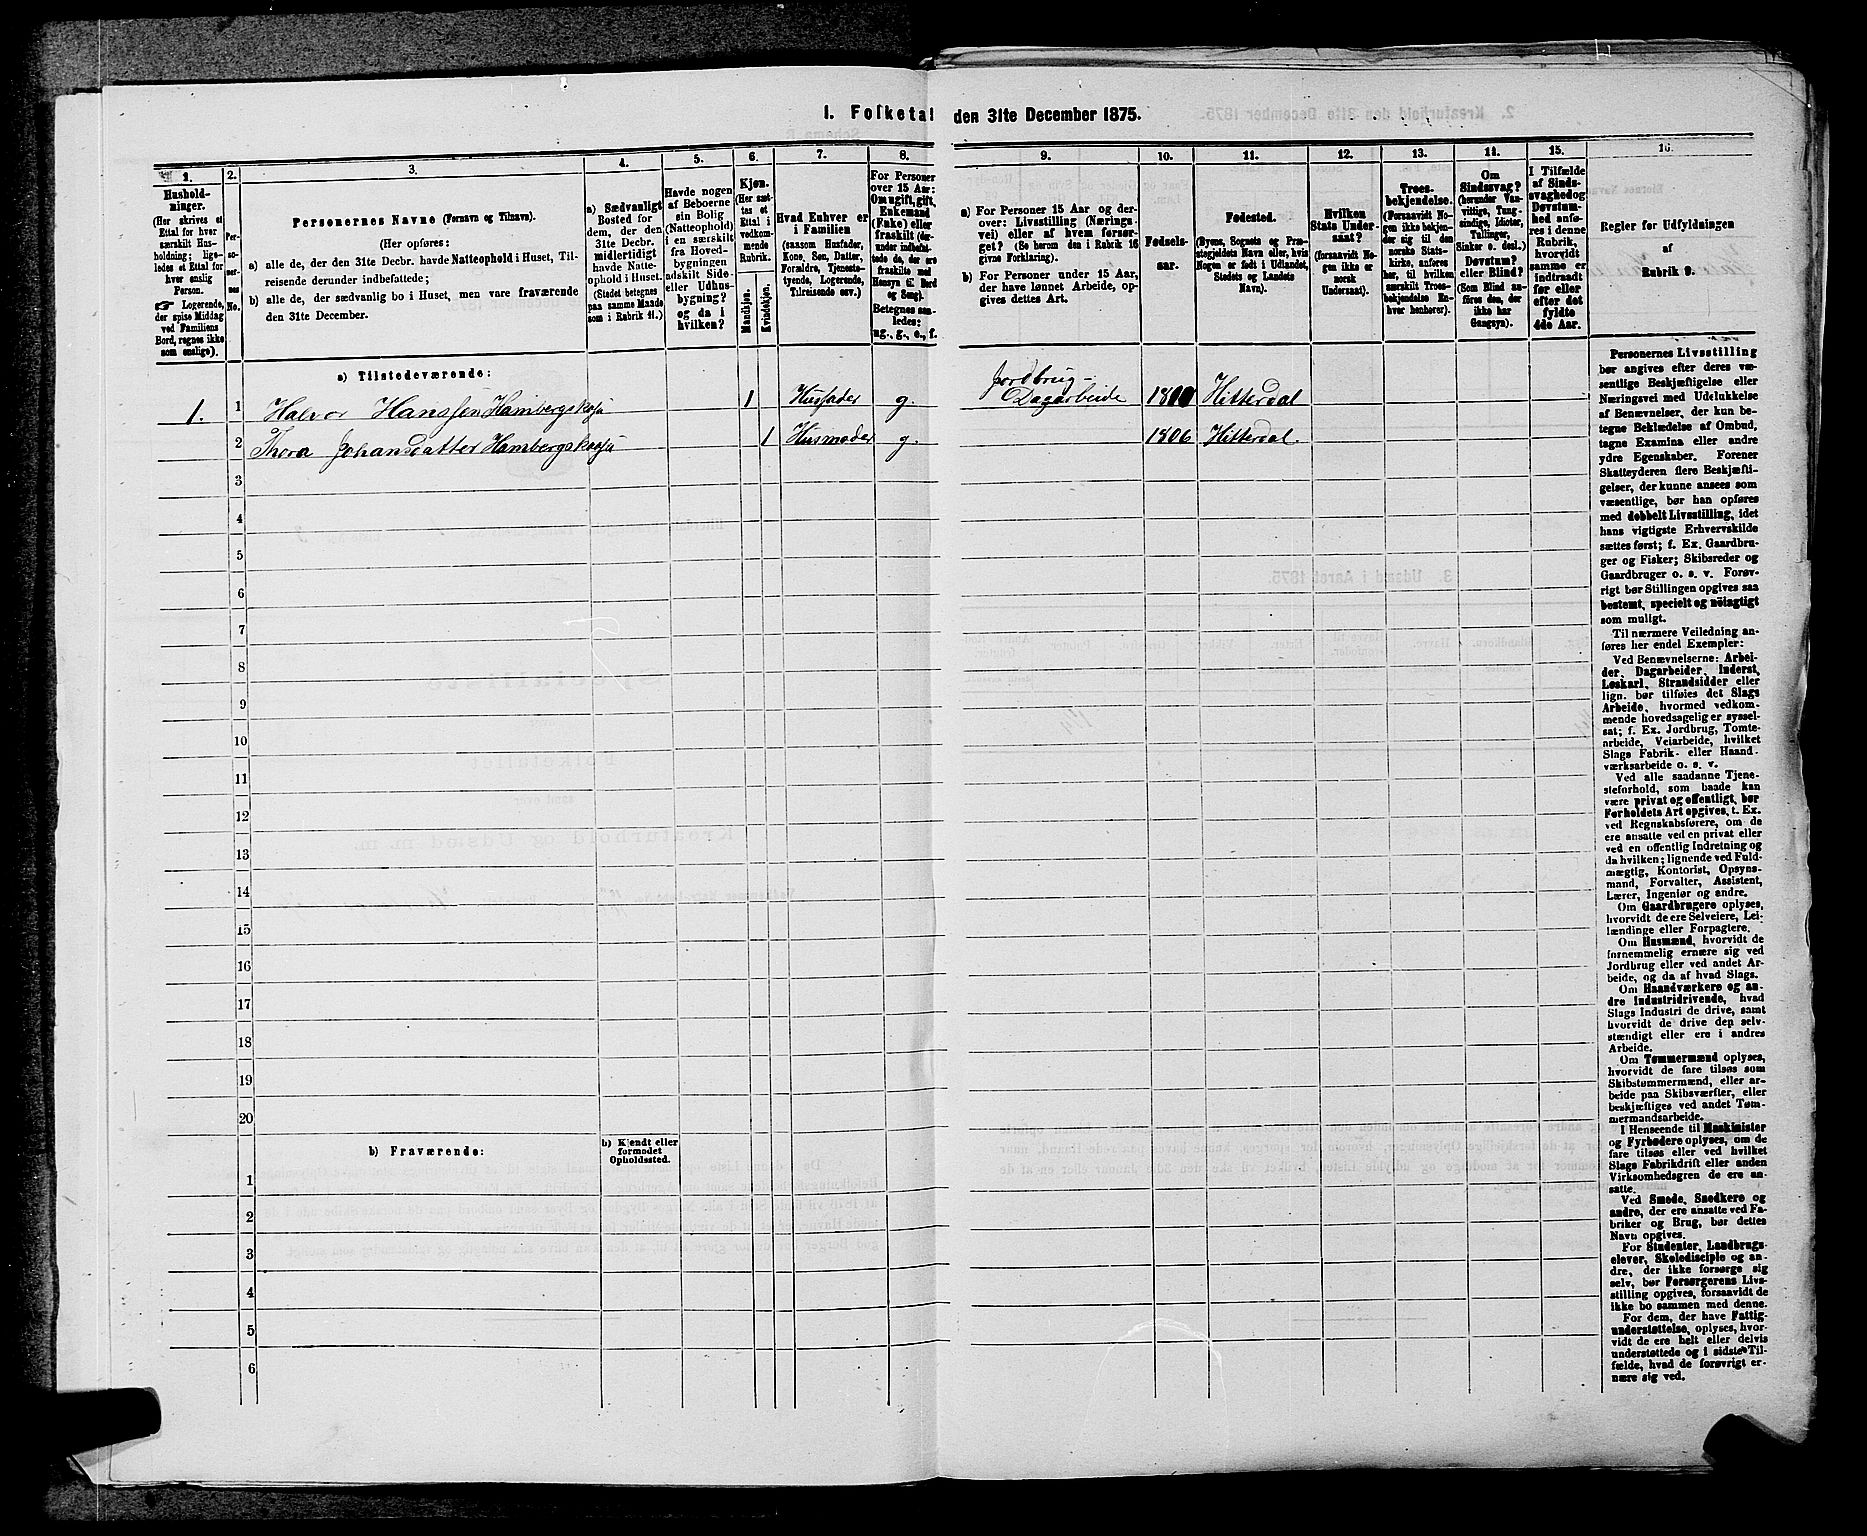 1. Folketal den 31te December 1875.
1.
Hushold-
ninger.
(Her skrives et
Ettal for hver
særskilt Hus-
holdning; lige-
ledes et Ettal for
hver enslig
Person.
☞ Logerende,
der spise Middag
ved Familiens
Bord, regnes ikke
som enslige).
2.
Per-
so-
ner-
nes
No.
3.
Personernes Navne (Fornavn og Tilnavn).
(Her opføres:
a) alle de, der den 31te Decbr. havde Natteophold i Huset, Til-
reisende derunder indbefattede;
b) alle de, der sædvanlig bo i Huset, men vare fraværende
den 31te December.
4.
a) Sædvanligt
Bosted for
dem, der den
31te Decbr.
midlertidigt
havde Natte-
ophold i Huset.
(Stedet betegnes
paa samme Maade
som i Rubrik 11.)
5.
Havde nogen
af Beboerne
sin Bolig
(Natteophold)
i en særskilt
fra Hoved-
bygningen
adskilt Side-
eller Udhus-
bygning?
og da i
hvilken?
6.
Kjøn.
(Her sæt-
tes et
Ettal i
vedkom-
mende
Rubrik.
Mandkjøn.
Kvindekjøn.
7.
Hvad Enhver er
i Familien
(saasom Husfader,
Kone, Søn, Datter,
Forældre, Tjeneste-
tyende, Logerende,
Tilreisende osv.)
8.
For Personer
over 15 Aar:
Om ugift, gift,
Enkemand
(Enke) eller
fraskilt (der-
under indbefat-
tede de, der ere
fraskilte med
Hensyn til Bord
og Seng).
Betegnes saa-
ledes:
ug., g., e., f.
9.
a) For Personer 15 Aar og der-
over: Livsstilling (Nærings-
vei) eller af hvem forsør-
get? (Se herom den i Rubrik 16
givne Forklaring).
b) For Personer under 15 Aar,
der have lønnet Arbeide, op-
gives dettes Art.
10.
Fødsels-
aar.
11.
Fødested.
(Byens, Sognets og Præ-
stegjeldets Navn eller, hvis
Nogen er født i Udlandet,
Stedets og Landets
Navn).
12.
Hvilken
Stats Under-
saat?
(forsaavidt No-
gen ikke er
norsk
Undersaat).
13.
Troes-
bekjendelse.
(Forsaavidt No-
gen ikke bekjen-
der sig til den
norske Stats-
kirke, anføres
her, til hvilken
særskilt Troes-
bekjendelse En-
hver henhører).
14.
Om
Sindssvag?
(herunder Van-
vittige, Tung-
sindige, Idioter,
Tullinger,
Sinker o. desl.)
Døvstum?
eller Blind?
(Som Blind an-
føres den, der
ikke har
Gangsyn).
15.
I Tilfælde
af Sinds-
svaghed og
Døvstum-
hed anfø-
res i denne
Rubrik,
hvorvidt
samme er
indtraadt
før eller
efter det
fyldte
4de Aar.
16.
Regler for Udfyldningen
af
Rubrik 9.
a) Tilstedeværende:
1. 1 Halvor Hanssen Hambergskaasa 1 Husfader g. Jordbrug-
Dagarbeide 1810 Hitterdal
2 Thora Johansdatter Hambergskaasa 1 Husmoder g. 1806 Hitterdal.
3
4
5
6
7
8
9
10
11
12
13
14
15
16
17
18
19
20
b) Fraværende:
b) Kjendt eller
formodet
Opholdssted.
1
2
3
4
5
6
Personernes Livsstilling
bør angives efter deres væ-
sentlige Beskjæftigelse eller
Næringsvei med Udelukkelse
af Benævnelser, der kun be-
tegne Beklædelse af Ombud,
tagne Examina eller andre
ydre Egenskaber. Forener
Skatteyderen flere Beskjæfti-
gelser, der kunne ansees som
væsentlige, bør han opføres
med dobbelt Livsstilling, idet
hans vigtigste Erhvervskilde
sættes først; f. Ex. Gaardbru-
ger og Fisker; Skibsreder og
Gaardbruger o. s. v. Forøv-
rigt bør Stillingen opgives saa
bestemt, specielt og nöiagtigt
som muligt.
Til nærmere Veiledning an-
føres her endel Exempler:
Ved Benævnelserne: Arbei-
der, Dagarbeider, Inderst,
Løskarl, Strandsidder eller
lign. bør tilføies det Slags
Arbeide, hvormed vedkom-
mende hovedsagelig er syssel-
sat; f. Ex. Jordbrug, Tomte-
arbeide, Veiarbeide, hvilket
Slags Fabrik- eller Haand-
værksarbeide o. s. v.
Ved alle saadanne Tjene-
steforhold, som baade kan
være privat og offentligt, bør
Forholdets Art opgives, t. Ex.
ved Regnskabsførere, om de
ere ansatte ved en privat eller
ved en offentlig Indretning og
da hvilken; lignende ved Fuld-
mægtig, Kontorist, Opsyns-
mand, Forvalter, Assistent,
Lærer, Ingeniør og andre.
Om Gaardbrugere oplyses,
hvorvidt de ere Selveiere, Lei-
lændinge eller Forpagtere.
Om Husmænd, hvorvidt de
fornemmelig ernære sig ved
Jordbrug eller ved andet Ar-
beide, og da af hvad Slags.
Om Haandværkere og an-
dre Industridrivende, hvad
Slags Industri de drive, samt
hvorvidt de drive den selv-
stændigt eller ere i andres
Arbeide.
Om Tømmermænd oplyses,
hvorvidt de fare tilsøs som
Skibstømmermænd, eller ar-
beide paa Skibsværfter, eller
beskjæftiges ved andet Tøm-
mermandsarbeide.
I Henseende til Maskinister
og Fyrbødere oplyses, om de
fare tilsøs eller ved hvilket
Slags Fabrikdrift eller anden
Virksomhedsgren de ere an-
satte.
Ved Smede, Snedkere og
andre, der ere ansatte ved Fa-
briker og Brug, bør dettes
Navn opgives.
For Studenter, Landbrugs-
elever, Skoledisciple og an-
dre, der ikke forsørge sig
selv, bør Forsørgerens Livs-
stilling opgives, forsaavidt de
ikke bo sammen med denne.
For dem, der have Fattig-
understøttelse, oplyses, hvor-
vidt de ere helt eller delvis
understøttede og i sidste Til-
fælde, hvad de forøvrigt er-
nære sig ved.